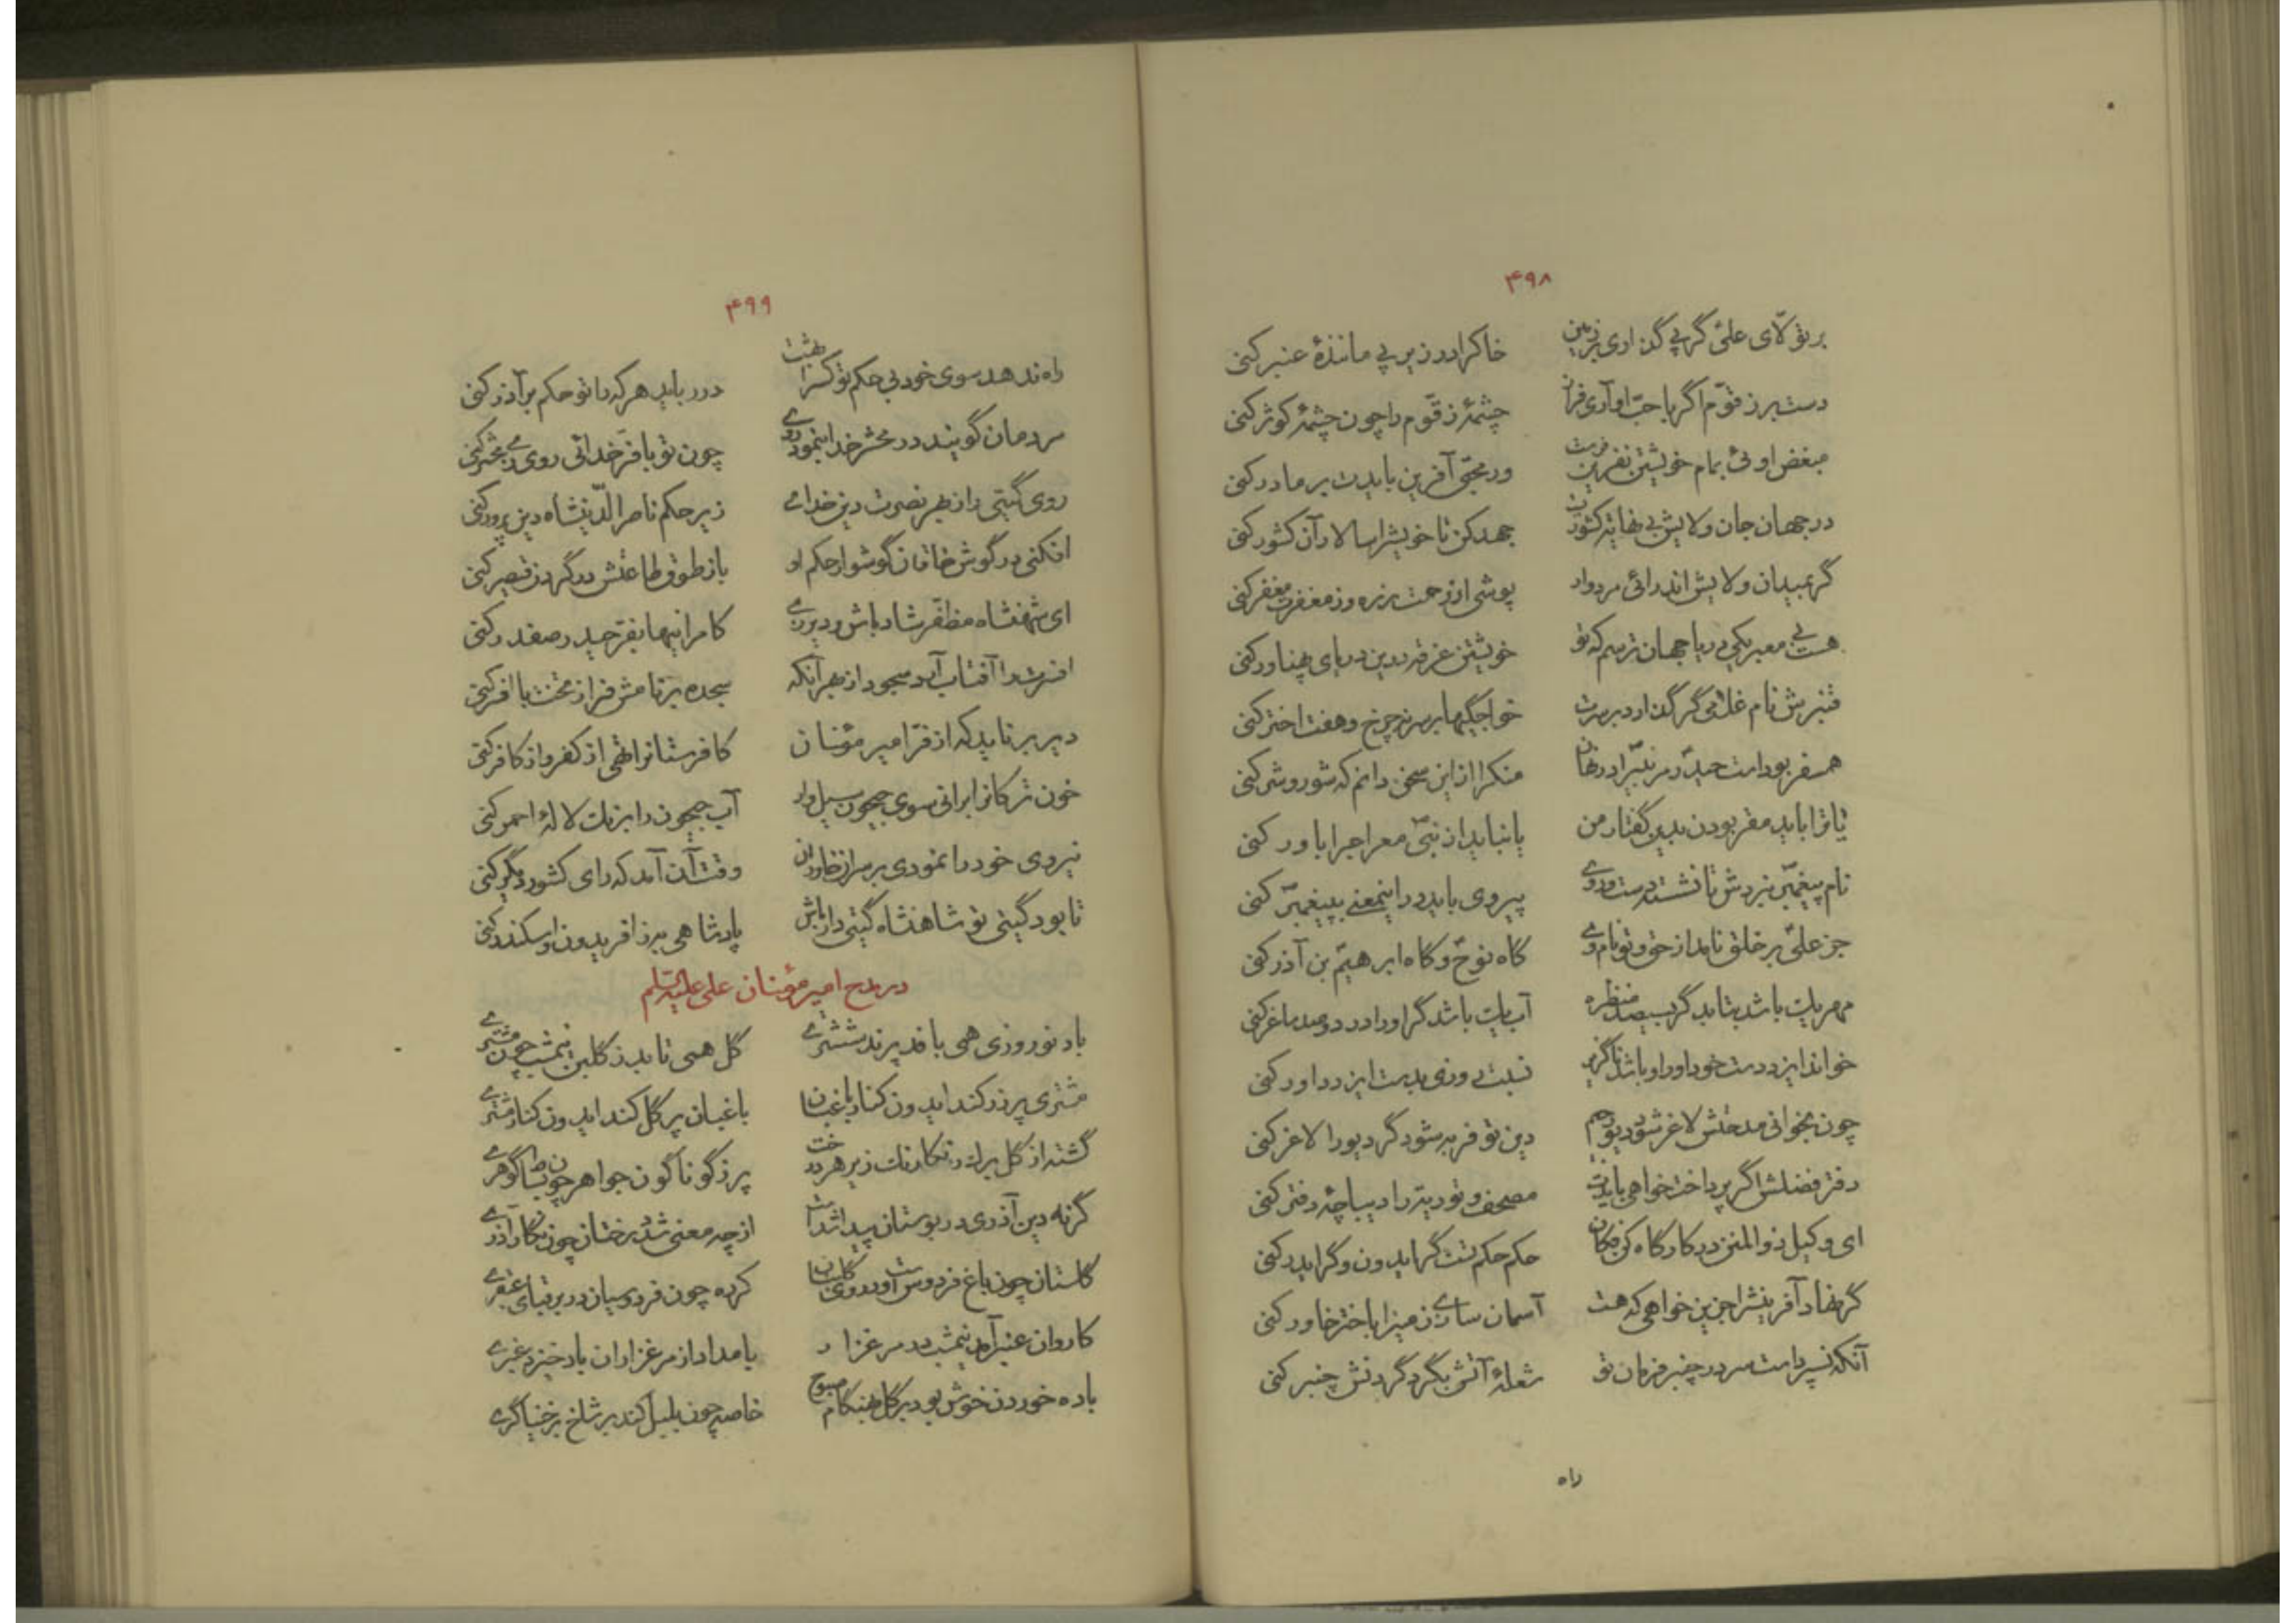 ۴۹۸
بر تولّای علی گر پی گذاری بر زمین خاک را در زیر پی مانندهٔ عنبر کنی
دست بر زقّوم اگر با حبّ او آری فراز چشمهٔ زقّوم را چون چشمهٔ کوثر کنی
مبغض اوئی بمام خویشتن نفرین فرست ور محبّی آفرین بایدت بر مادر کنی
در جهان جان ولایش بی نهایة کشورست جهد کن تا خویش را سالار آن کشور کنی
گر بمیدان ولایش اندر آئی مردوار پوشی از رحمت زره وز مغفرت مغفر کنی
هست بی معبر یکی دریا جهان ترسم که تو خویشتن غرقه درین دریای پهناور کنی
قنبرش نام غلامی گر گذارد بر سرت خواجگیها بر سر نه چرخ و هفت اختر کنی
همسفر بودست حیدر مر نبیّ را در نهان منکرا از این سخن دانم که شور و شر کنی
یا ترا باید مقر بودن بدین گفتار من یا نباید از نبیّ معراج را باور کنی
نام پیغمبر نبردش تا نشسته دست و روی پیروی باید در اینمعنی بپیغمبر کنی
جز علی بر خلق نامد از حق و تو نام وی گاه نوح و گاه ابرهیم بن آذر کنی
مهر یک باشد بتابد گر بسیصد منظره آب یک باشد گر او را در دو صد ساغر کنی
خواند ایزد دست خود او را و باشد ناگزیر نسبت ... بدست ایزد داور کنی
چون بخوانی مدحتش لاغر شود دیو دهم دین تو فربه شود گر دیو را لاغر کنی
دفتر فضلش اگر پرداخت خواهی بایدت مصحف و توریة را دیباچهٔ دفتر کنی
ای وکیل ذوالمنن در کارگاه کن فکان حکم حکم تست گر ایدون و گر ایدر کنی
گر نهاد آفرینش را جز این خواهی که هست آسمان سازی زمین را باختر خاور کنی
آنکه نسپردست سر در چنبر فرمان تو شعلهٔ آتش بگرد گردنش چنبر کنی
راه
۴۹۹
راه ندهد سوی خود بی حکم تو کس را بهشت در رباید هر که را تو حکم بر آذر کنی
مردمان گویند در محشر خدا بنمود روی چون تو با فرّ خدائی روی در محشر کنی
روی گیتی را ز بهر نصرت دین خدای زیر حکم ناصر الدّین شاه دین پرور کنی
افکنی در گوش خاقان گوشوار حکم او باز طوق طاعتش در گردن قیصر کنی
ای شهنشاه مظفّر شاد باش و دیر زی کامرانیها بفرّ حیدر صفدر کنی
افسرت را آفتاب آرد سجود از بهر آنکه سجده بر نامش فراز تخت با افسر کنی
دیر بر ناید که از فرّ امیر مؤمنان کافرستان را تهی از کفر و از کافر کنی
خون ترکان را برانی سوی جیحون سیل وار آب جیحون را برنگ لالهٔ احمر کنی
نیروی خود را نمودی بر سر از خاوران وقت آن آمد که رای کشور دیگر کنی
تا بود گیتی تو شاهنشاه گیتی دار باش پادشاهی برز افریدون و اسکندر کنی
در مدح امیر مؤمنان علی علیه السّلم
باد نوروزی همی بافد پرند ششتری گل همی تابد ز گلبن نیمشب چون مشتری
مشتری پر زر کند ایدون کنار باغبان باغبان پر گل کند ایدون کنار مشتری
گشته از گل ... رنگارنگ زیر هر درخت پر ز گوناگون جواهر چون بساط گوهری
گر نه دین آذری در بوستان پیدا شدست از چه معنی شد درختان چون نگار آذری
گلستان چون باغ فردوس است و در وی گلبنان کرده چون فردوسیان در بر قبای عبقری
کاروان عنبر آمد نیمشب در مرغزار بامداد از مرغزاران باد خیزد عنبری
باده خوردن خوش بود بر گل بهنگام صبوح خاصه چون بلبل کند بر شاخ بر خنیاگری